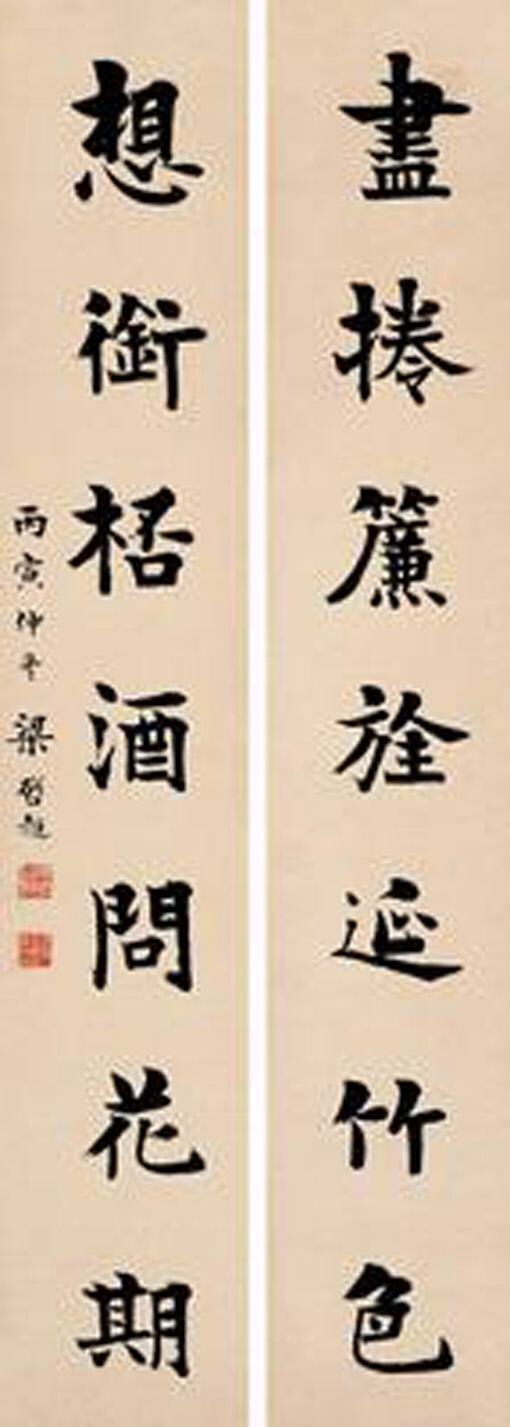 盡捲簾旌延竹色
想銜桮酒問花期
丙寅仲冬 梁啓超